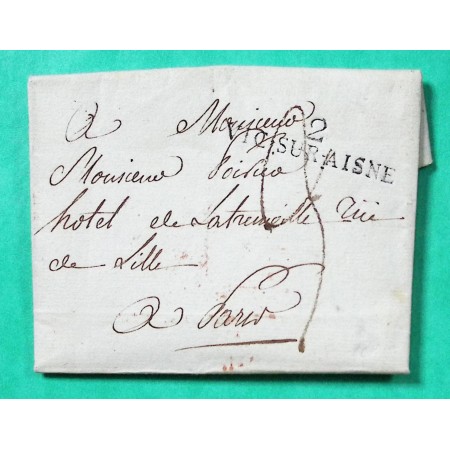 A Monsieur
2
VIC-SUR-AISNE
Monsieur Poirier
hotel de Latremoille rüe
de Lille
A Paris